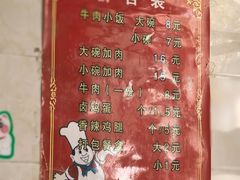 价目表
牛肉小饭 大碗 8元
小碗 7元
大碗加肉 16元
小碗加肉 15元
牛肉(一份)
卤鸡蛋 个/1.5元
香辣鸡腿 个/5元
打包餐盒 大2元
小1元